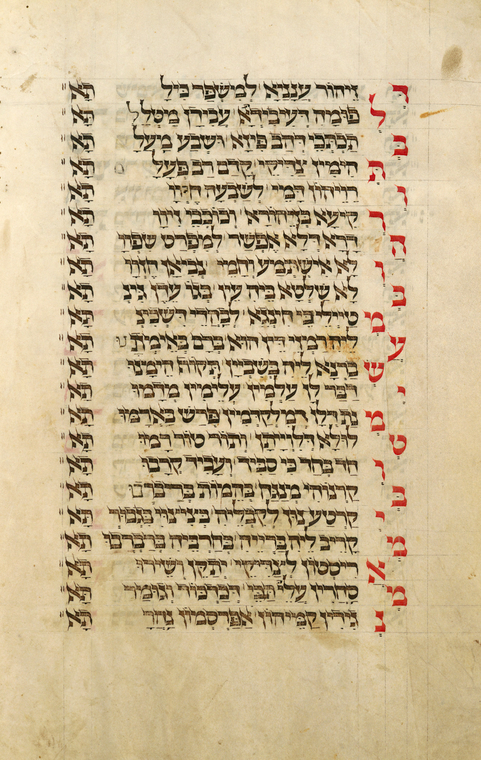 דזיהור ענניא למשפר כילתא
לפומיה דעבידא עבידן מטללתא
בתכתכי דהב פיזא ושבע מעלתא
תחימין צדיקי קדם רב פעלתא
וזיויהון דמי לשבעה חדוותא
רקיעא בזיהורא וכוכבי זיוותא
הדרא דלא אפשר למפרט שפוותא
ולא אישתמע וחמי נביאן חזוותא
בלא שלטא ביה עין בגו עדן גינתא
מטיילי בי חינגא לבהדי דשכינתא
עליה רמזי דין הוא ברם באימתנותא
שברנא ליה בשביין תקוף הימנותא
ידבר לן עלמין עלימין מדמותא
מנת דילן דמלקדמין פרש בארמותא
טלולא דלויתן ותור טור רמותא
וחד בחד כי סביך ועביד קרבותא
בקרנוהי מנגח בהמות ברברבותא
יקרטע נון לקבליה בציצוי בגבורתא
מקריב ליה ברייה בחרביה ברברבותא
אריסטון לצדיקי יתקן ושירותא
מסחרין עלי תכי דכדכוד וגומרתא
נגידין קמיהון אפרסמון נהרתא